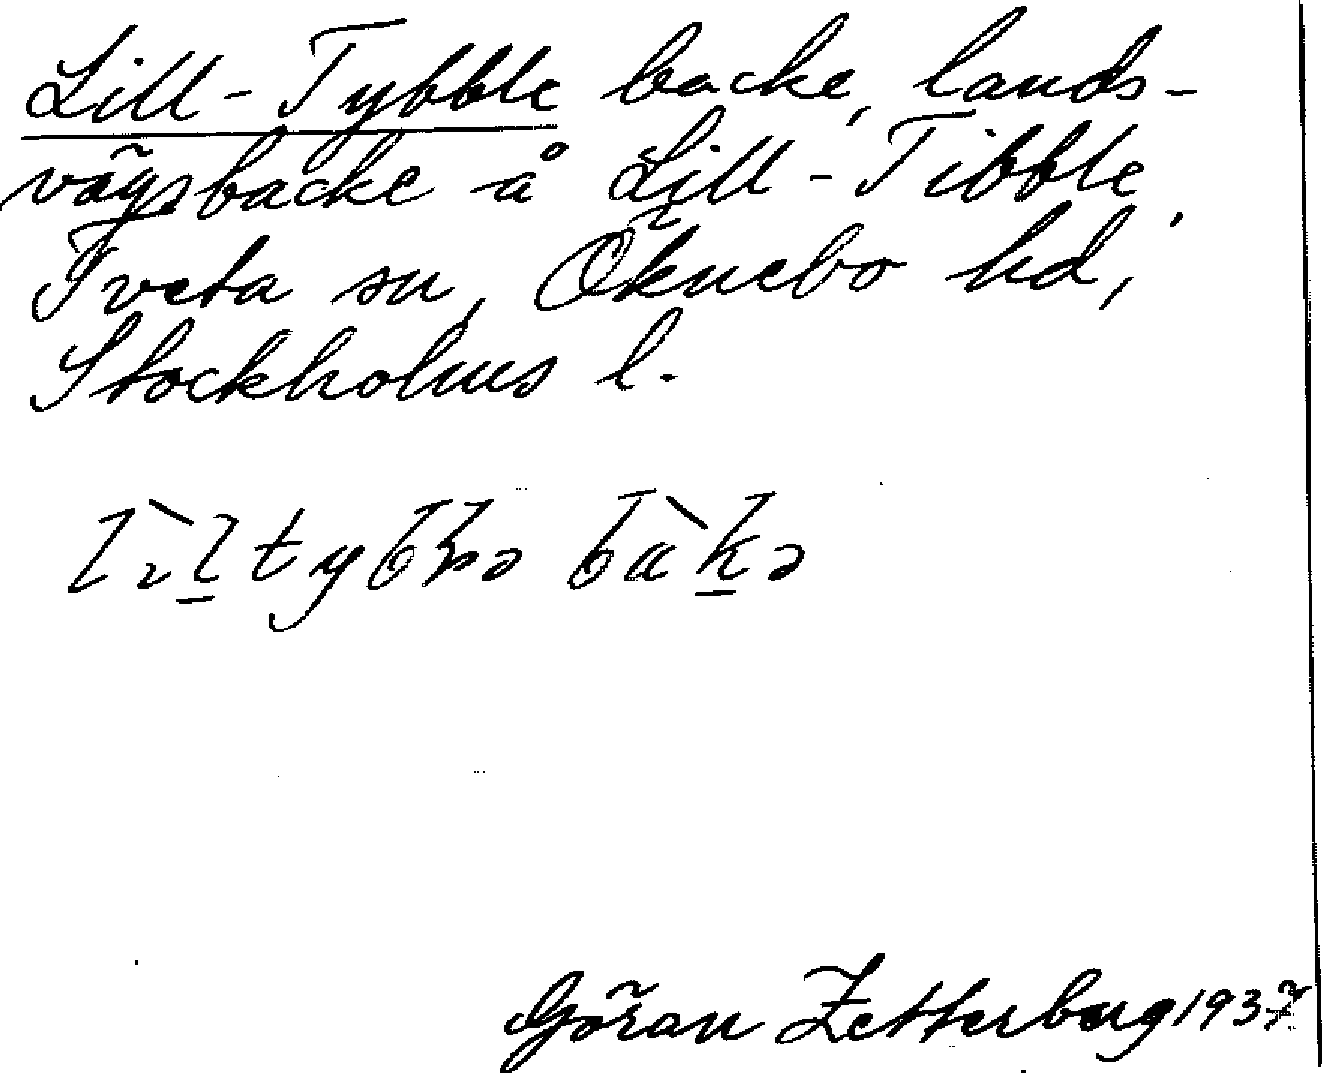 Lill-Tybble backe, lands-
vägsbacke å Lill-Tibble,
Tveta sn, Öknebo hd,
Stockholms l.
Göran Zetterberg 1937